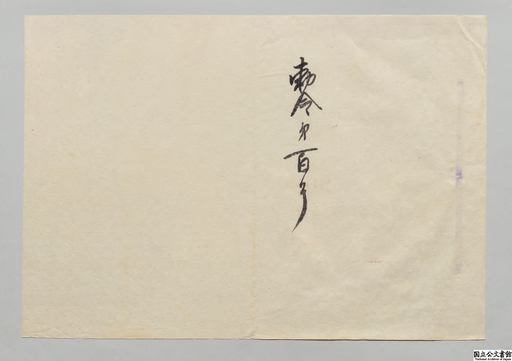 勅令第百号
国立公文書館
National Archives of Japan